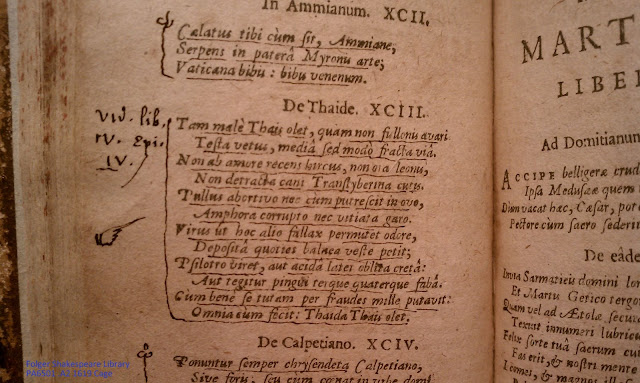 In Ammianum. XCII.
Cælatus tibi cum sit, Ammiane,
Serpens in paterâ Myronu arte;
Vaticana bibu: bibu venenum.
De Thaide. XCIII.
Vid. lib.
IV. Epi.
IV.
Tam malè Thais olet, quam non fullonu avari
Testa vetus, mediâ sed modò fracta viâ.
Non ab amore recens hircus, non ora leonu,
Non detracta cani Transtyberina cutis.
Pullus abortivo nec cum putrescit in ovo,
Amphora corrupto nec vitiata garo.
Virus ut hoc alio fallax permutet odore,
Deposita quoties balnea veste petit;
Psilotro viret, aut acidâ latet oblita cretâ:
Aut tegitur pingui terque quaterque fabâ.
Cum bene se tutam per fraudes mille putavit:
Omnia cum fecit: Thaida Thais olet.
De Calpetiano. XCIV.
Ponuntur semper chrysendeta Calpetiano,
Sive foru, seu cum cœnat in urbe domi.
MART
LIBE
Ad Domitianum
ACCIPE belligeræ crud
Ipsa Medusææ quem
Dum vacat hæc, Cæsar, pot
Pectore cum sacro sederit
De eâde
Invia Sarmaticu domini lor
Et Martu Getico tergo
Quam vel ad Ætolæ secur
Texuit innumeri lubric
Felix sorte tuâ sacrum cu
Fas erit, & nostri ment
Folger Shakespeare Library
PA6501 .A1 1619 Cage